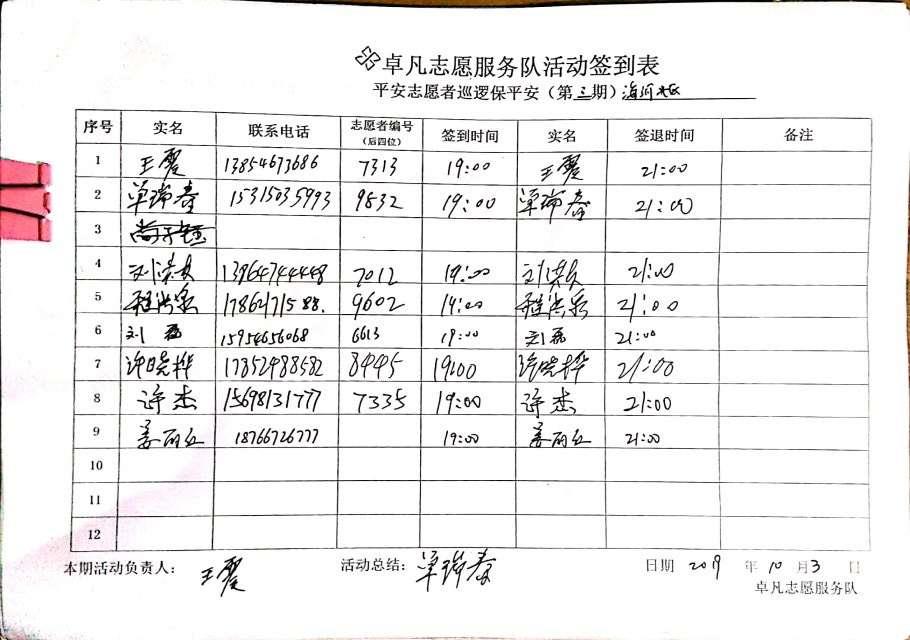 卓凡志愿服务队活动签到表
平安志愿者巡逻保平安（第三期）
序号 实名 联系电话 志愿者编号（后四位） 签到时间 实名 签退时间 备注
1 王震 13854673686 7313 19:00 王震 21:00
2 单瑞春 15315035993 9832 19:00 单瑞春 21:00
3
4 13964744448 7012 19:00 21:00
5 9602 19:00 21:00
6 刘磊 15954656068 6613 19:00 刘磊 21:00
7 许晓桦 17852488582 8445 19:00 许晓桦 21:00
8 许杰 15698131777 7335 19:00 许杰 21:00
9 姜丽红 18766726777 19:00 姜丽红 21:00
10
11
12
本期活动负责人：王震 活动总结：单瑞春 日期 2019 年 10 月 3 日
卓凡志愿服务队